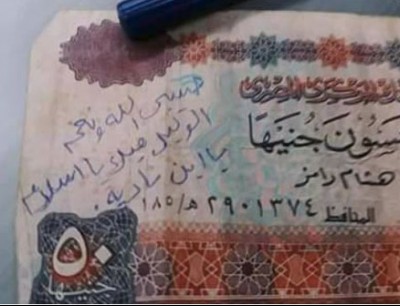 البنك المركزي المصري
حسبى الله ونعم
الوكيل فيك يا اسلام
يا ابن نادية.
خمسون جنيها
هشام رامز
المحافظ
١٨٥/ﻫ ٢٩٠١٣٧٤
٥٠
جنيها